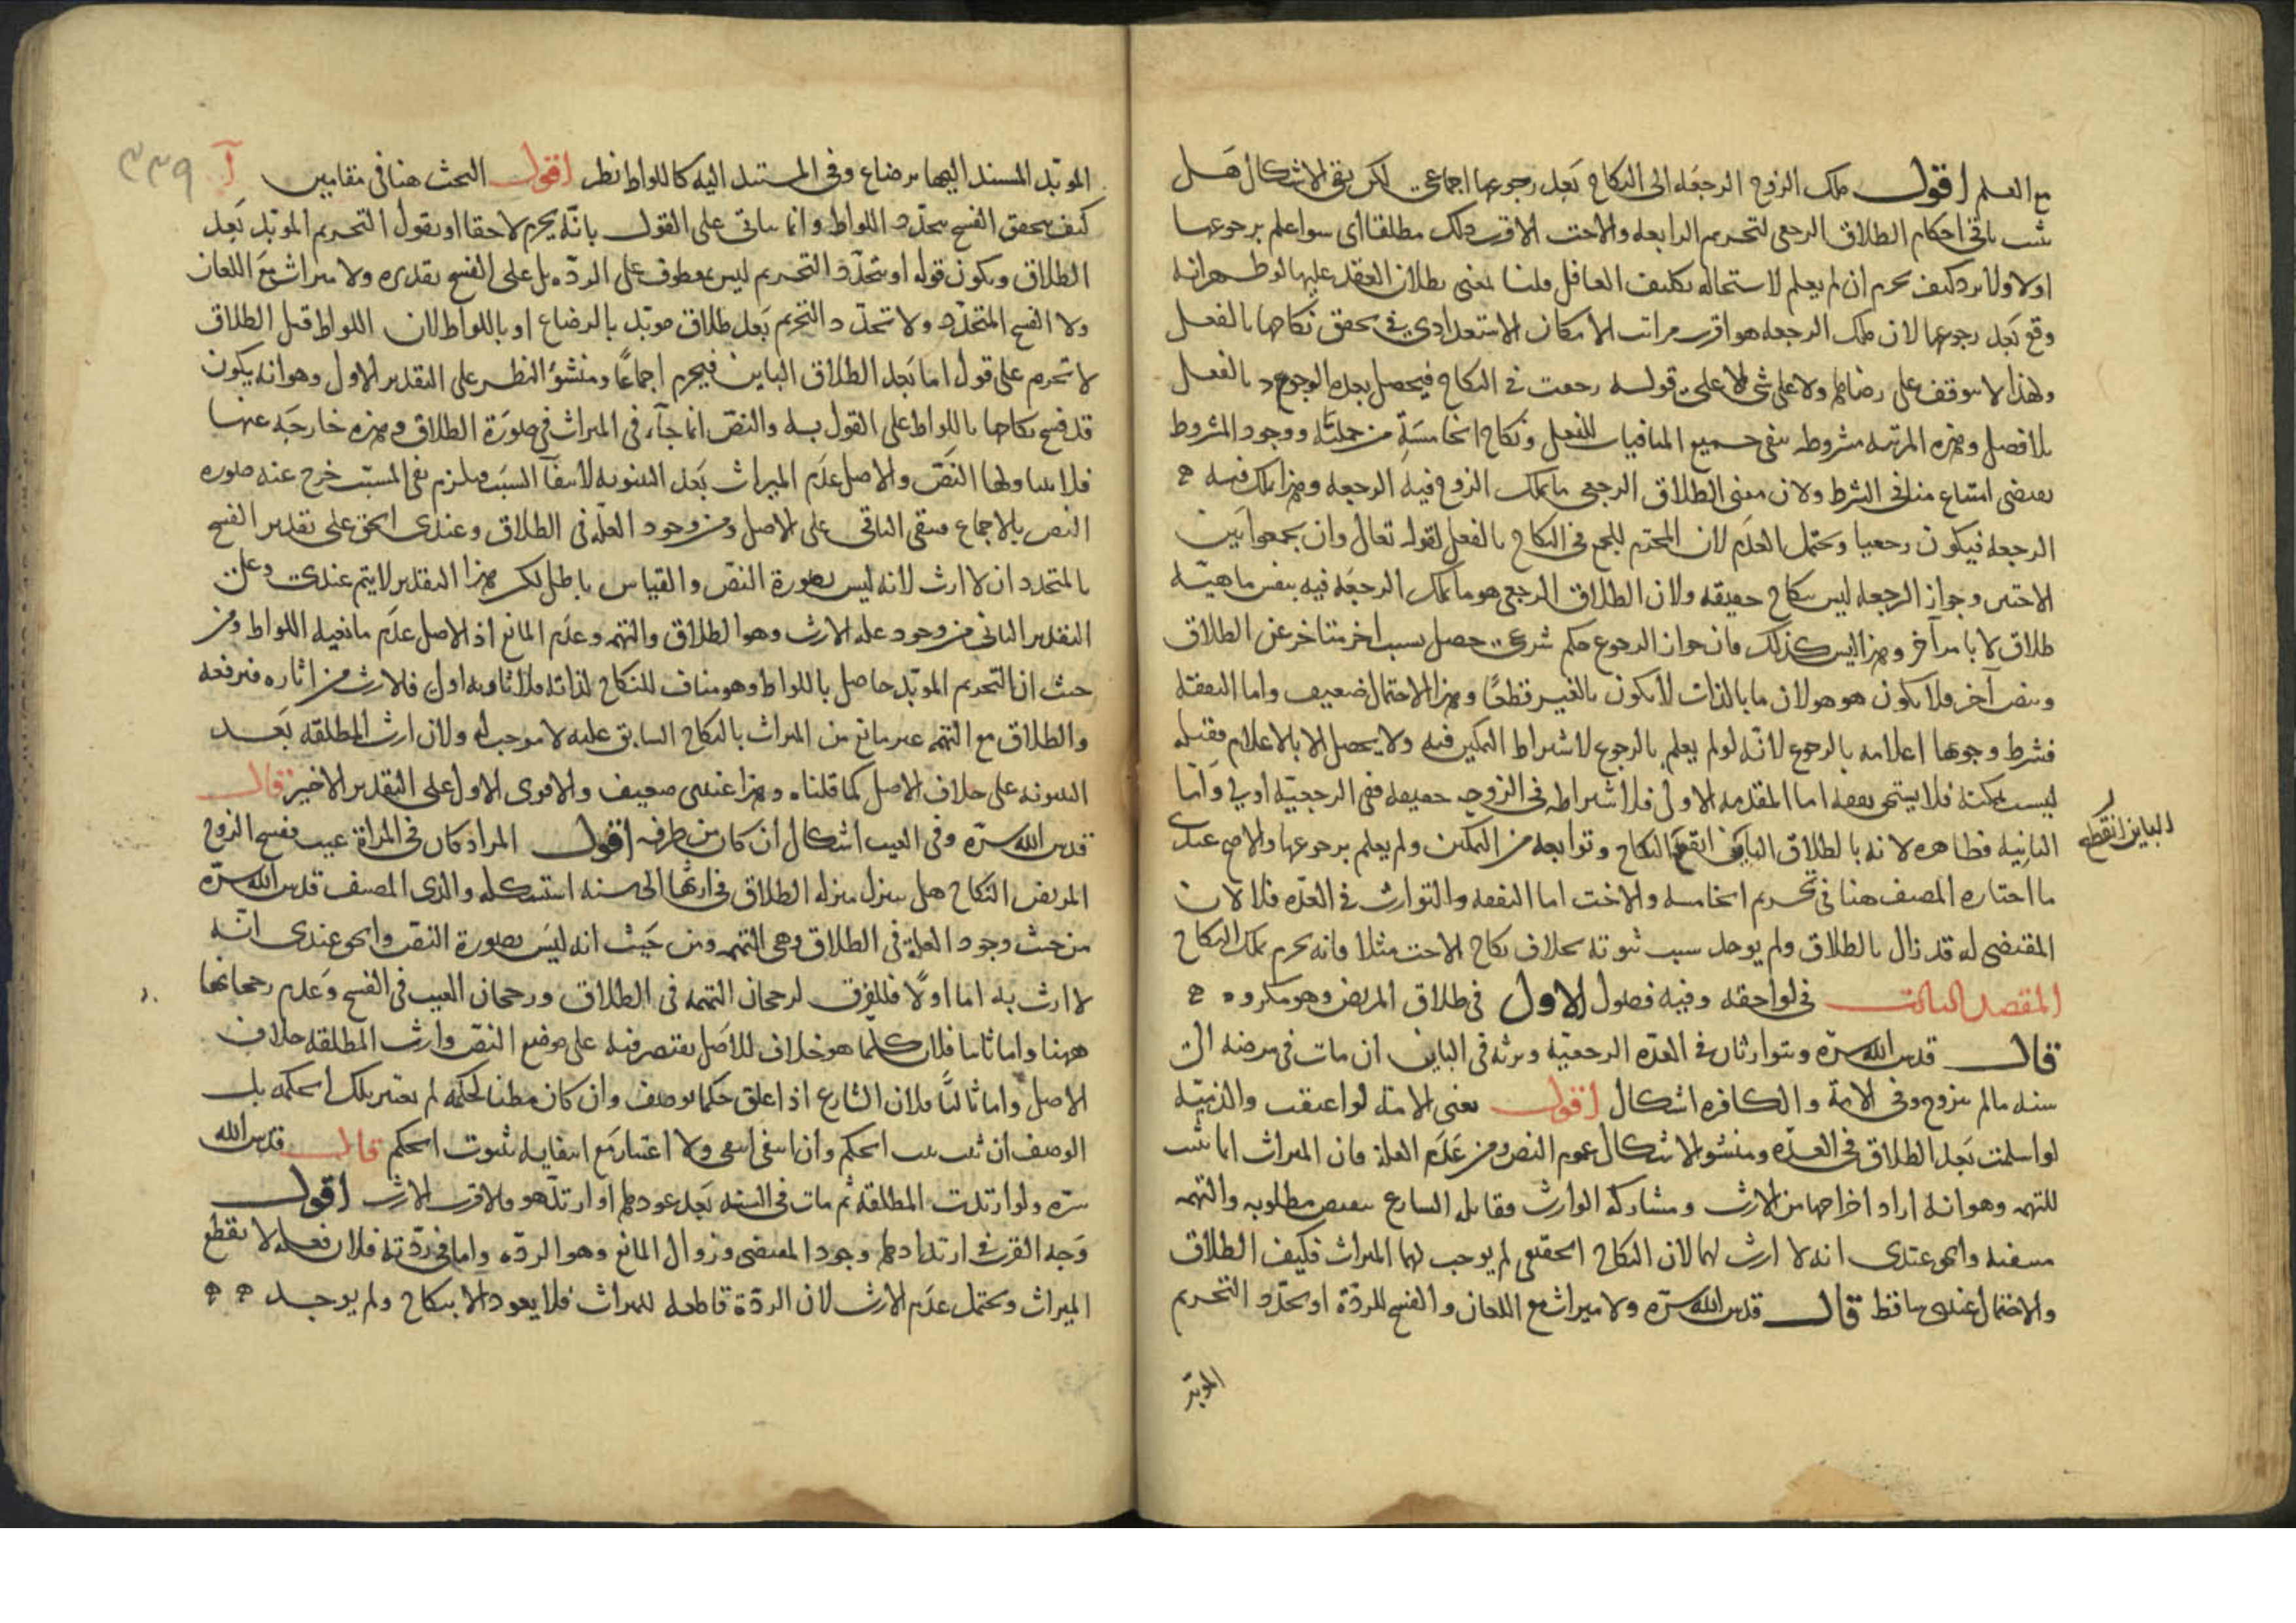 مع العلم اقول ملك الزوج الرجعة الى النكاح بعد رجوعها اجماعى لكن بقى الاشكال هل
يثبت باقى احكام الطلاق الرجعى لتحريم الرابعة والاخت الاقرب ذلك مطلقا اى سواء علم برجوعها
اولا ولا يرد كيف يحرم ان لم يعلم لاستحالة تكليف الغافل قلنا بمعنى بطلان العقد عليها لو ظهر انه
وقع بعد رجوعها لان ملك الرجعة هو اقرب مراتب الامكان الاستعدادى فى تحقق نكاحها بالفعل
ولهذا لا يتوقف على رضاها ولا على شى الا على قوله رجعت فى النكاح فيحصل بعده الوجود بالفعل
بلا فصل وهذه المرتبة مشروطة بنفى جميع المنافيات للفعل ونكاح الخامسة من جملته ووجود المشروط
يقتضى امتناع منافى الشرط ولان معنى الطلاق الرجعى ما يملك الزوج فيه الرجعة وهذا يملك فيه
الرجعة فيكون رجعيا ويحتمل العدم لان المحرم للجمع فى النكاح بالفعل لقوله تعالى وان تجمعوا بين
الاختين وجواز الرجعة ليس بنكاح حقيقة ولان الطلاق الرجعى هو ما يملك الرجعة فيه بنفس ماهية
طلاق لا بامر آخر وهذا ليس كذلك فان جواز الرجوع حكم شرعى حصل بسبب اخر متاخر عن الطلاق
وبنص آخر فلا يكون هو هو لان ما بالذات لا يكون بالغير قطعا وهذا الاحتمال ضعيف واما النفقة
فشرط وجوبها اعلامه بالرجوع لانه لو لم يعلم بالرجوع لاشتراط التمكين فيه ولا يحصل الا بالاعلام فقبله
ليست ممكنة فلا يستحق نفقة اما المقدمة الاولى فلاشتراطه فى الزوجة حقيقة ففى الرجعية اولى واما
الثانية فظاهره لانه بالطلاق الباين انقطع النكاح وتوابعه من التمكين ولم يعلم برجوعها والاصح عندى
الباين انقطع
ما اختاره المصنف هنا فى تحريم الخامسة والاخت اما النفقة والتوارث فى العدة فلا لان
المقتضى له قد زال بالطلاق ولم يوجد سبب ثبوته بخلاف نكاح الاخت مثلا فانه يحرم بملك النكاح
المقصد الثالث فى لواحقه وفيه فصول الاول فى طلاق المريض وهو مكروه
قال قدس الله سره ويتوارثان فى العدة الرجعية وترثه فى الباين ان مات فى مرضه الى
سنة مالم تتزوج وفى الامة والكافرة اشكال اقول يعنى الامة لو اعتقت والذمية
لو اسلمت بعد الطلاق فى العدة ومنشؤ الاشكال عموم النص ومن عدم العلة فان الميراث انما ثبت
للتهمة وهو انه اراد اخراجها من الارث ومشاركة الوارث فقابله الشارع بنقيض مطلوبه والتهمة
منفية والحق عندى انه لا ارث لهما لان النكاح الحقيقى لم يوجب لهما الميراث فكيف الطلاق
والاحتمال عندى ساقط قال قدس الله سره ولا ميراث مع اللعان والفسخ للردة او تجدد التحريم
المؤبد
٣٣٩
المؤبد المسند اليها برضاع وفى المستند اليه كاللواط نظر اقول البحث هنا فى مقامين آ
كيف يتحقق الفسخ بتجدد اللواط وانما ياتى على القول بانه يحرم لاحقا او يقول التحريم المؤبد بعد
الطلاق ويكون قوله او بتجدد التحريم ليس بمعطوف على الردة بل على الفسخ تقديره ولا ميراث مع اللعان
ولا الفسخ المتجدد ولا تجدد التحريم بعد طلاق مؤبد بالرضاع او باللواط لان اللواط قبل الطلاق
لا تحرم على قول اما بعد الطلاق الباين فيحرم اجماعا ومنشؤ النظر على التقدير الاول وهو انه يكون
قد فسخ نكاحها باللواط على القول به والنص انما جاء فى الميراث فى صورة الطلاق وهذه خارجة عنها
فلا يتناولها النص والاصل عدم الميراث بعد البينونة لانتفاء السبب فيلزم نفى المسبب خرج عنه صورة
النص بالاجماع فيبقى الباقى على الاصل ومن وجود العلة فى الطلاق وعندى الحق على تقدير الفسخ
بالمتجدد ان لا ارث لانه ليس بصورة النص والقياس باطل لكن هذا التقدير لا يتم عندى وعلى
التقدير الثانى من وجود علة الارث وهو الطلاق والتهمة وعدم المانع اذ الاصل عدم مانعية اللواط ومن
حيث ان التحريم المؤبد حاصل باللواط وهو مناف للنكاح لذاته فلاثاره اولى فالارث من اثاره فيرفعه
والطلاق مع التهمة غير مانع من الميراث بالنكاح السابق عليه لا موجب له ولان ارث المطلقة بعد
البينونة على خلاف الاصل كما قلناه وهذا عندى ضعيف والاقوى الاول على التقدير الاخير قال
قدس الله سره وفى العيب اشكال ان كان من طرفه اقول المراد كان فى المراة عيب ففسخ الزوج
المريض النكاح هل ينزل منزلة الطلاق فى ارثها الى سنة استشكله والدى المصنف قدس الله سره
من حيث وجود العلة فى الطلاق وهى التهمة ومن حيث انه ليس بصورة النص والحق عندى انه
لا ارث به اما اولا فللفرق لرجحان التهمة فى الطلاق ورجحان العيب فى الفسخ وعدم رجحانها
ههنا واما ثانيا فلان كلما هو خلاف للاصل يقتصر فيه على موضع النص وارث المطلقة خلاف
الاصل واما ثالثا فلان الشارع اذا علق حكما بوصف وان كان مظنا لحكمة لم يعتبر تلك الحكمة بل
الوصف ان ثبت ثبت الحكم وان انتفى انتفى ولا اعتبار مع انتفائه بثبوت الحكم قال قدس الله
سره ولو ارتدت المطلقة ثم مات فى السنة بعد عودها او ارتد هو فالاقرب الارث اقول
وجه القرب فى ارتدادها وجود المقتضى وزوال المانع وهو الردة واما فى ردته فلان فعله لا يقطع
الميراث ويحتمل عدم الارث لان الردة قاطعة للميراث فلا يعود الا بنكاح ولم يوجد